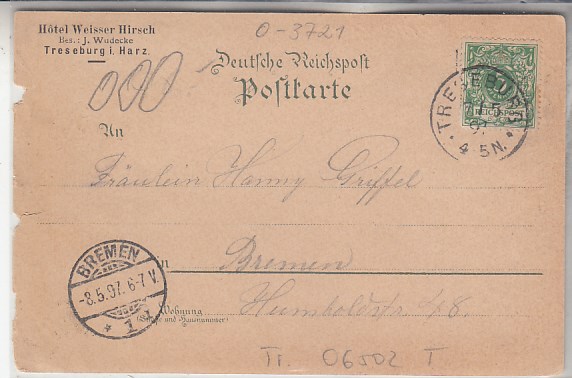 O-3721
Hôtel Weisser Hirsch
Bes.: J. Wudecke
Treseburg i. Harz.
Deutsche Reichspost
Postkarte
REICHSPOST
TRESEBURG
4 5N.
An
Fräulein Hanny Griffel
BREMEN
-8.5.97. 6-7 V.
* 1
in Bremen
Wohnung
Humboldstr. 48.
(Straße und Hausnummer)
Tr. 06502 T